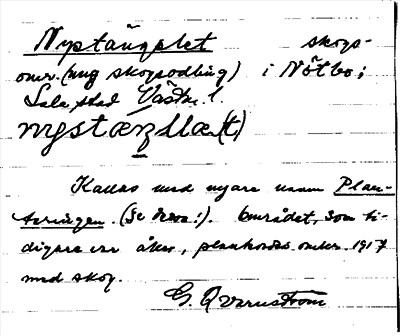 Nystängslet skogs-
omr. (ung skogsodling) i Nötbo;
Sala stad Västm. l.
nystæŋslæ(t)
Kallas med nyare namn Plan-
teringen. (Se dessa!). Området, som ti-
digare var åker, planterades omkr. 1917
med skog.
G. Qvarnström